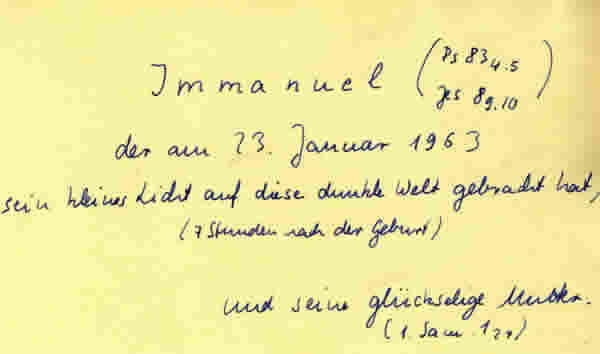 Immanuel (Ps 83 4.5
Jes 8 9.10)
der am 23. Januar 1963
sein kleines Licht auf diese dunkle Welt gebracht hat,
(7 Stunden nach der Geburt)
und seine glückselige Mutter.
(1. Sam. 1 27)